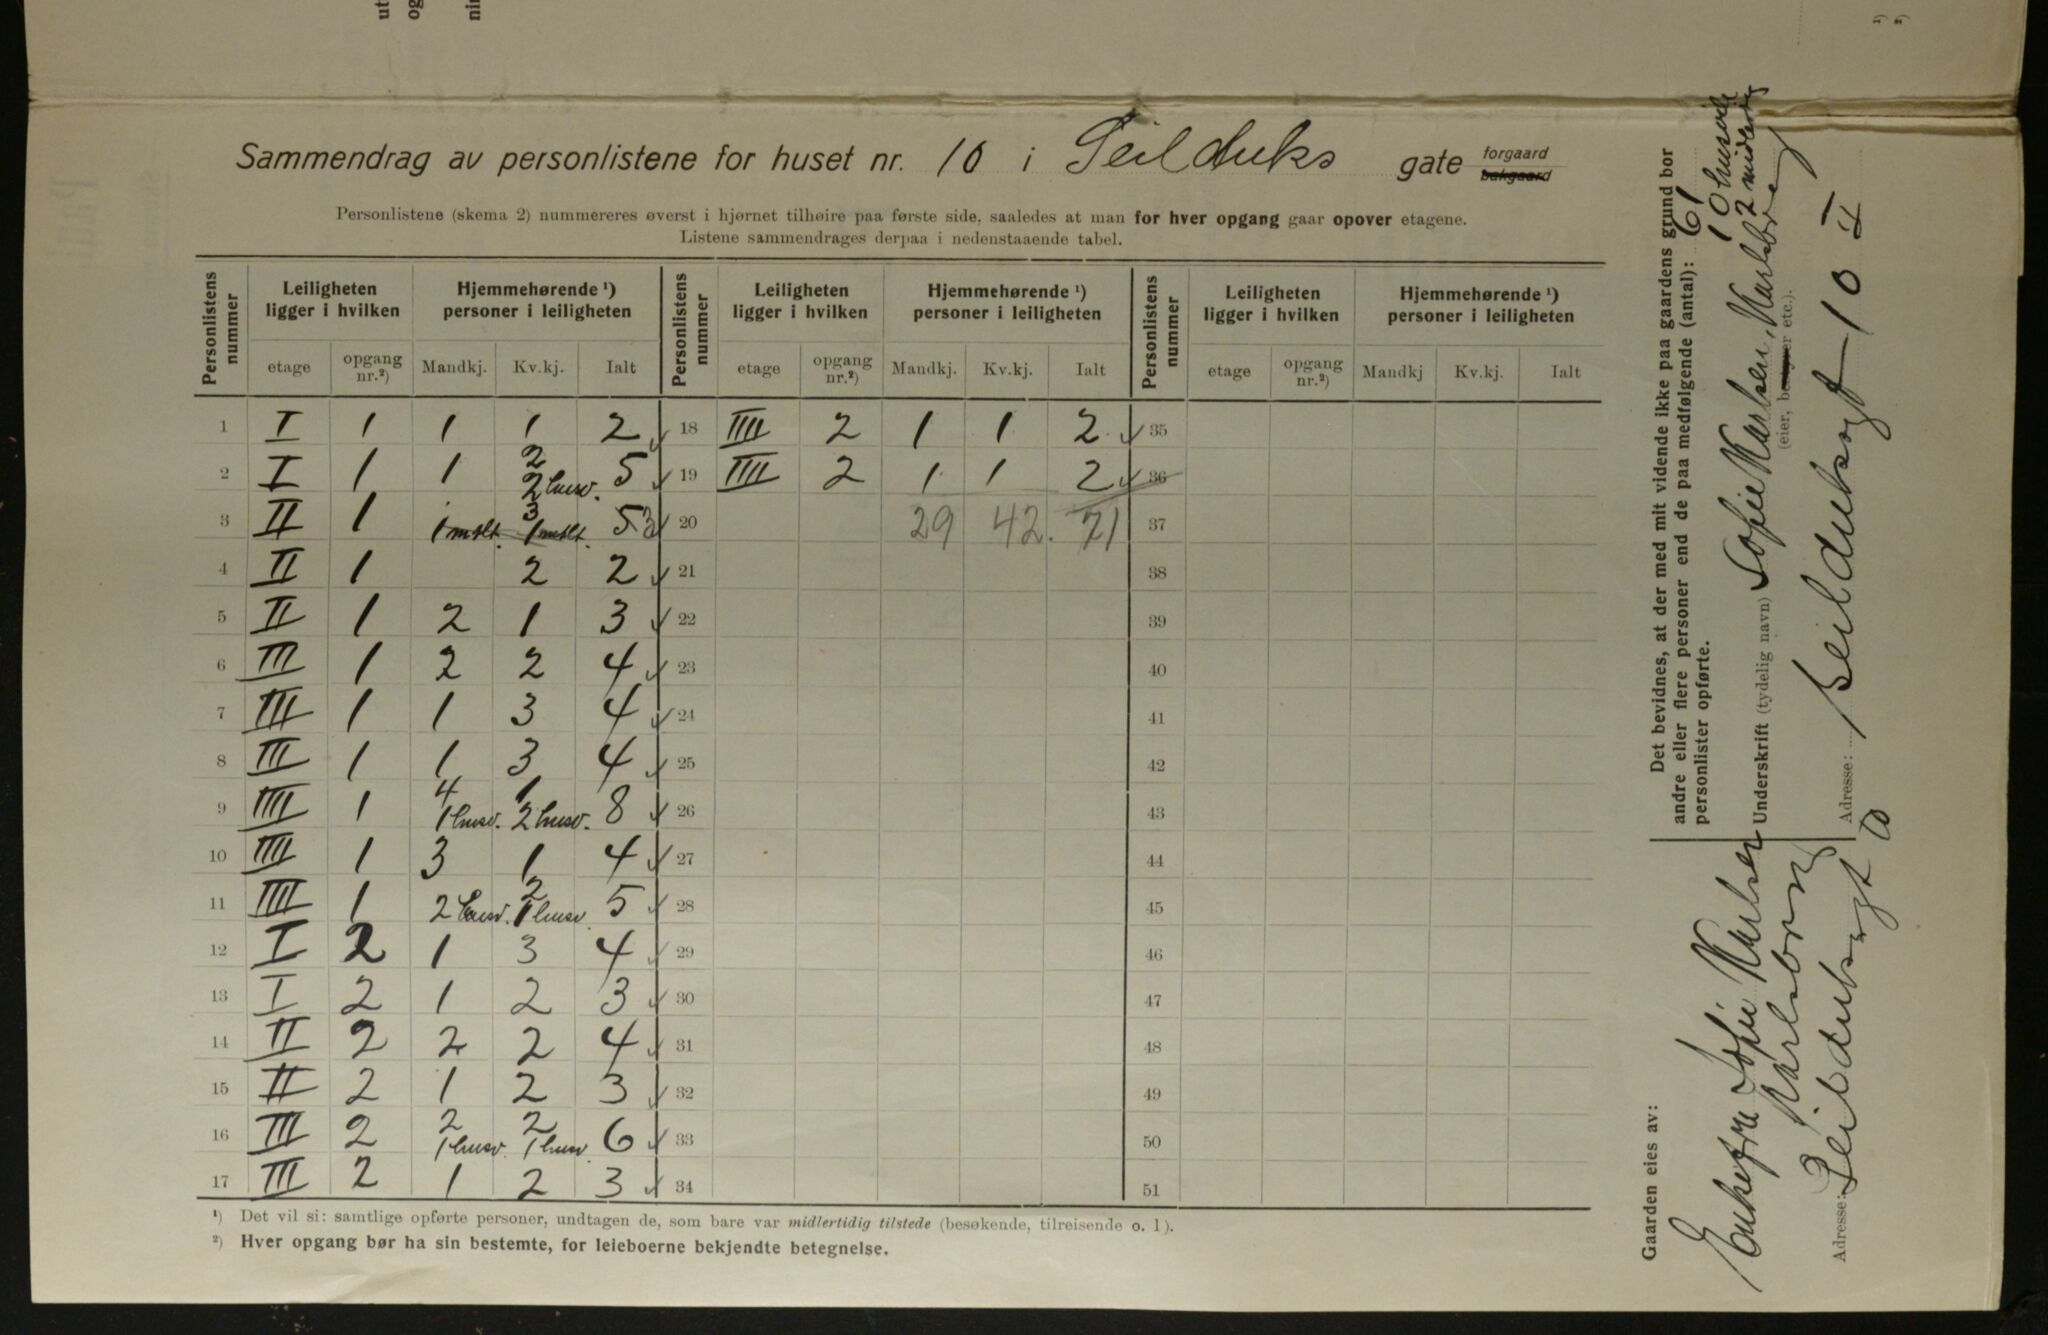 Sammendrag av personlistene for huset nr. 10 i Seilduks gate forgaard bakgaard
Personlistene (skema 2) nummereres øverst i hjørnet tilhøire paa første side, saaledes at man for hver opgang gaar opover etagene.
Listene sammendrages derpaa i nedenstaaende tabel.
Personlistens nummer | Leiligheten ligger i hvilken | Hjemmehørende ¹) personer i leiligheten | Personlistens nummer | Leiligheten ligger i hvilken | Hjemmehørende ¹) personer i leiligheten | Personlistens nummer | Leiligheten ligger i hvilken | Hjemmehørende ¹) personer i leiligheten
etage | opgang nr.²) | Mandkj. | Kv.kj. | Ialt | etage | opgang nr.²) | Mandkj. | Kv.kj. | Ialt | etage | opgang nr.²) | Mandkj | Kv.kj. | Ialt
1 I 1 1 1 2 18 IIII 2 1 1 2 35
2 I 1 1 2 2 husv. 5 19 IIII 2 1 1 2 36
3 II 1 1 mtlt. 3 1 mtlt. 5 3 20 29 42. 71 37
4 II 1 2 2 21 38
5 II 1 2 1 3 22 39
6 III 1 2 2 4 23 40
7 III 1 1 3 4 24 41
8 III 1 1 3 4 25 42
9 IIII 1 4 1 husv. 1 2 husv. 8 26 43
10 IIII 1 3 1 4 27 44
11 IIII 1 2 husv. 2 1 husv. 5 28 45
12 I 2 1 3 4 29 46
13 I 2 1 2 3 30 47
14 II 2 2 2 4 31 48
15 II 2 1 2 3 32 49
16 III 2 2 1 husv. 2 1 husv. 6 33 50
17 III 2 1 2 3 34 51
¹) Det vil si: samtlige opførte personer, undtagen de, som bare var midlertidig tilstede (besøkende, tilreisende o. l).
²) Hver opgang bør ha sin bestemte, for leieboerne bekjendte betegnelse.
Gaarden eies av:
Enkefru Sofie Karlsen
Karlsborg
Adresse: Seilduksgt 10
Det bevidnes, at der med mit vidende ikke paa gaardens grund bor
andre eller flere personer end de paa medfølgende (antal): 61
10 husvilde
2 midlertidig
personlister opførte.
Underskrift (tydelig navn) Sofie Karlsen, Karlsborg
(eier, bestyrer etc.).
Adresse: Seilduksgt 10 II
ut
og
nin
¹)
²)